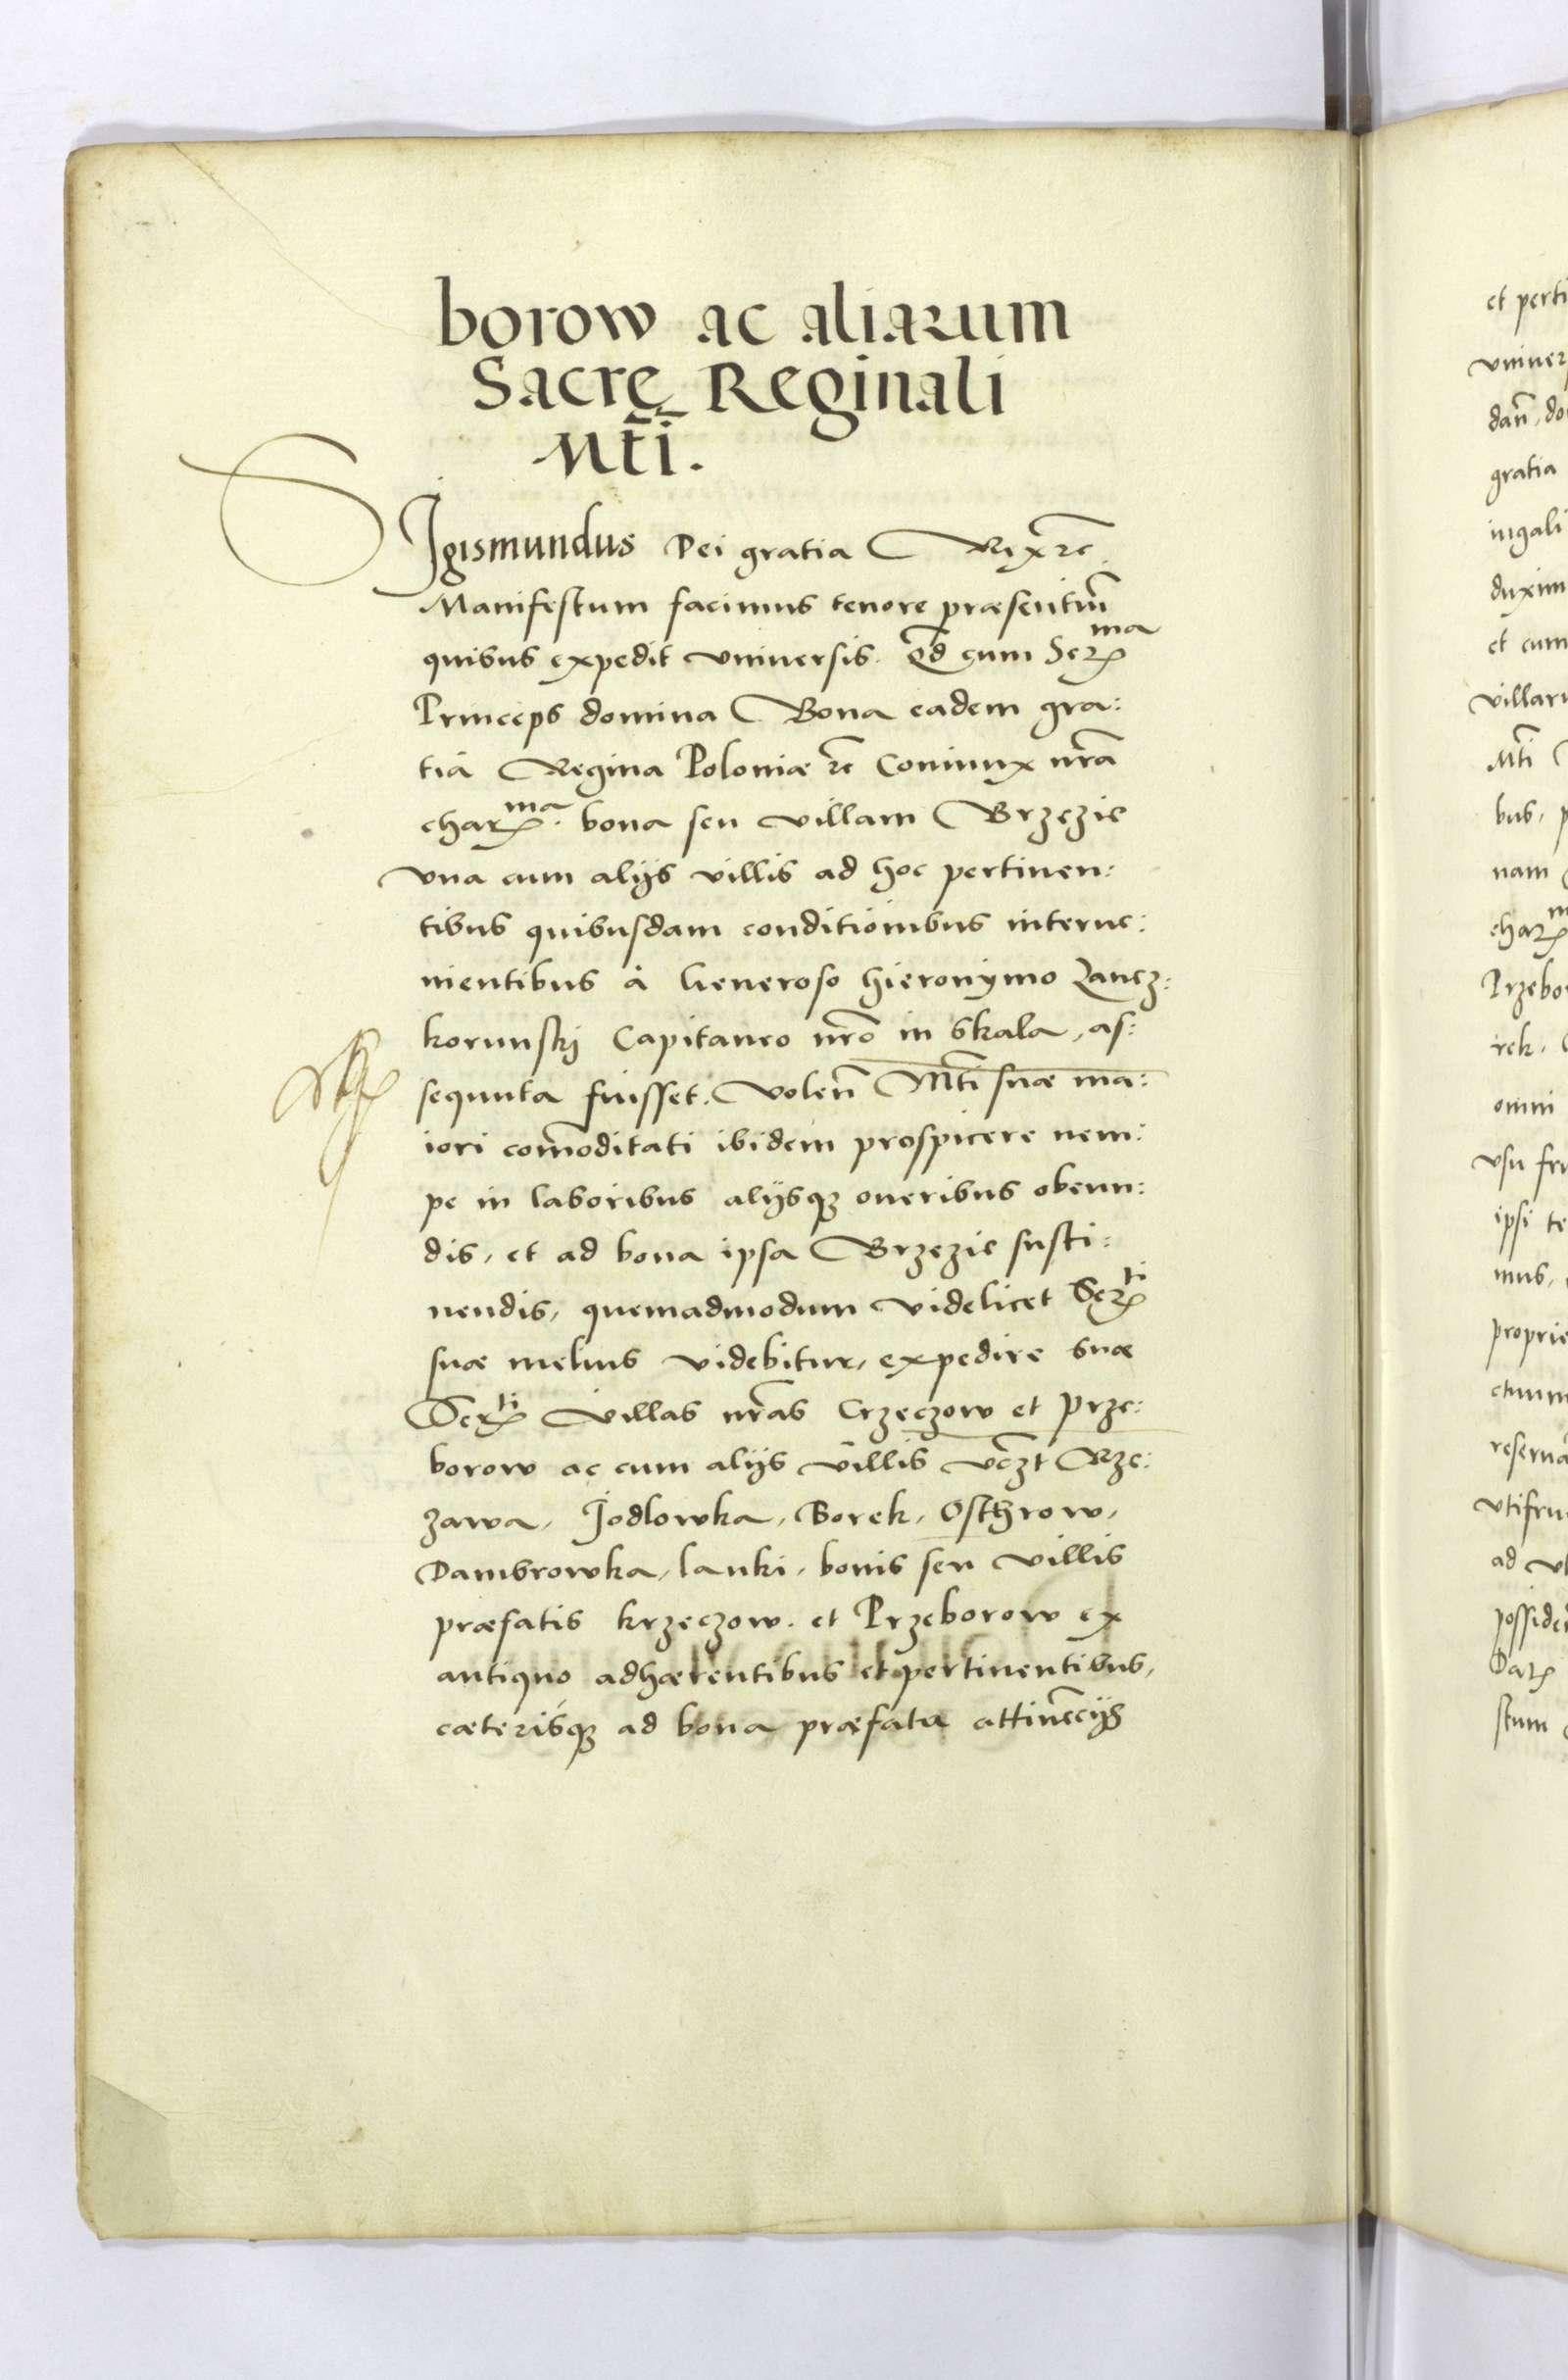 borow ac aliarum
Sacrę Reginali
Mt̄i.
SIgismundus Dei gratia Rex ꝛc
Manifestum facimus tenore præsentiu͂
quibus expedit vniuersis. Qd̄ cum Ser^ma
Princeps domina Bona eadem gra:
tia Regina Poloniæ ꝛc Coniunx nr̄a
char^ma. bona seu villam Brzezie
vna cum alijs villis ad hoc pertinen:
tibus quibusdam conditioīnbus interue:
nientibus à Generoso Hieronymo Lancz:
korunskj Capitaneo nr̄o in Skala, as:
sequuta fuisset. Volen̄ Mt̄i suæ ma:
iori com̄oditati ibidem prospicere nem:
pe in laboribus alijsqꝫ oneribus obeun:
dis, et ad bona ipsa Brzezie susti:
nendis, quemadmodum videlicet Ser^ti
suæ melius videbitur, expedire suæ
Ser^ti Villas nr̄as Crzeczow et Prze:
borow ac cum alijs villis vcz̄t Rze:
zawa, Jodlowka, Borek, Osthrow,
Dambrowka, lanki, bonis seu villis
præfatis krzeczow. et Przeborow ex
antiquo adhærentibus et pertinentibus,
cæterisqꝫ ad bona præfata attinēcijs
et perti
vniuer
dan̄, do
gratia
iugali
duxim
et cum
villaru
Mt̄i
bus, p
nam
char^m
Przebo
rek,
omni
vsu fru
ipsi te
mus,
proprie
ctuum
reserua
vtifru
ad vt
posside
Dat
stum